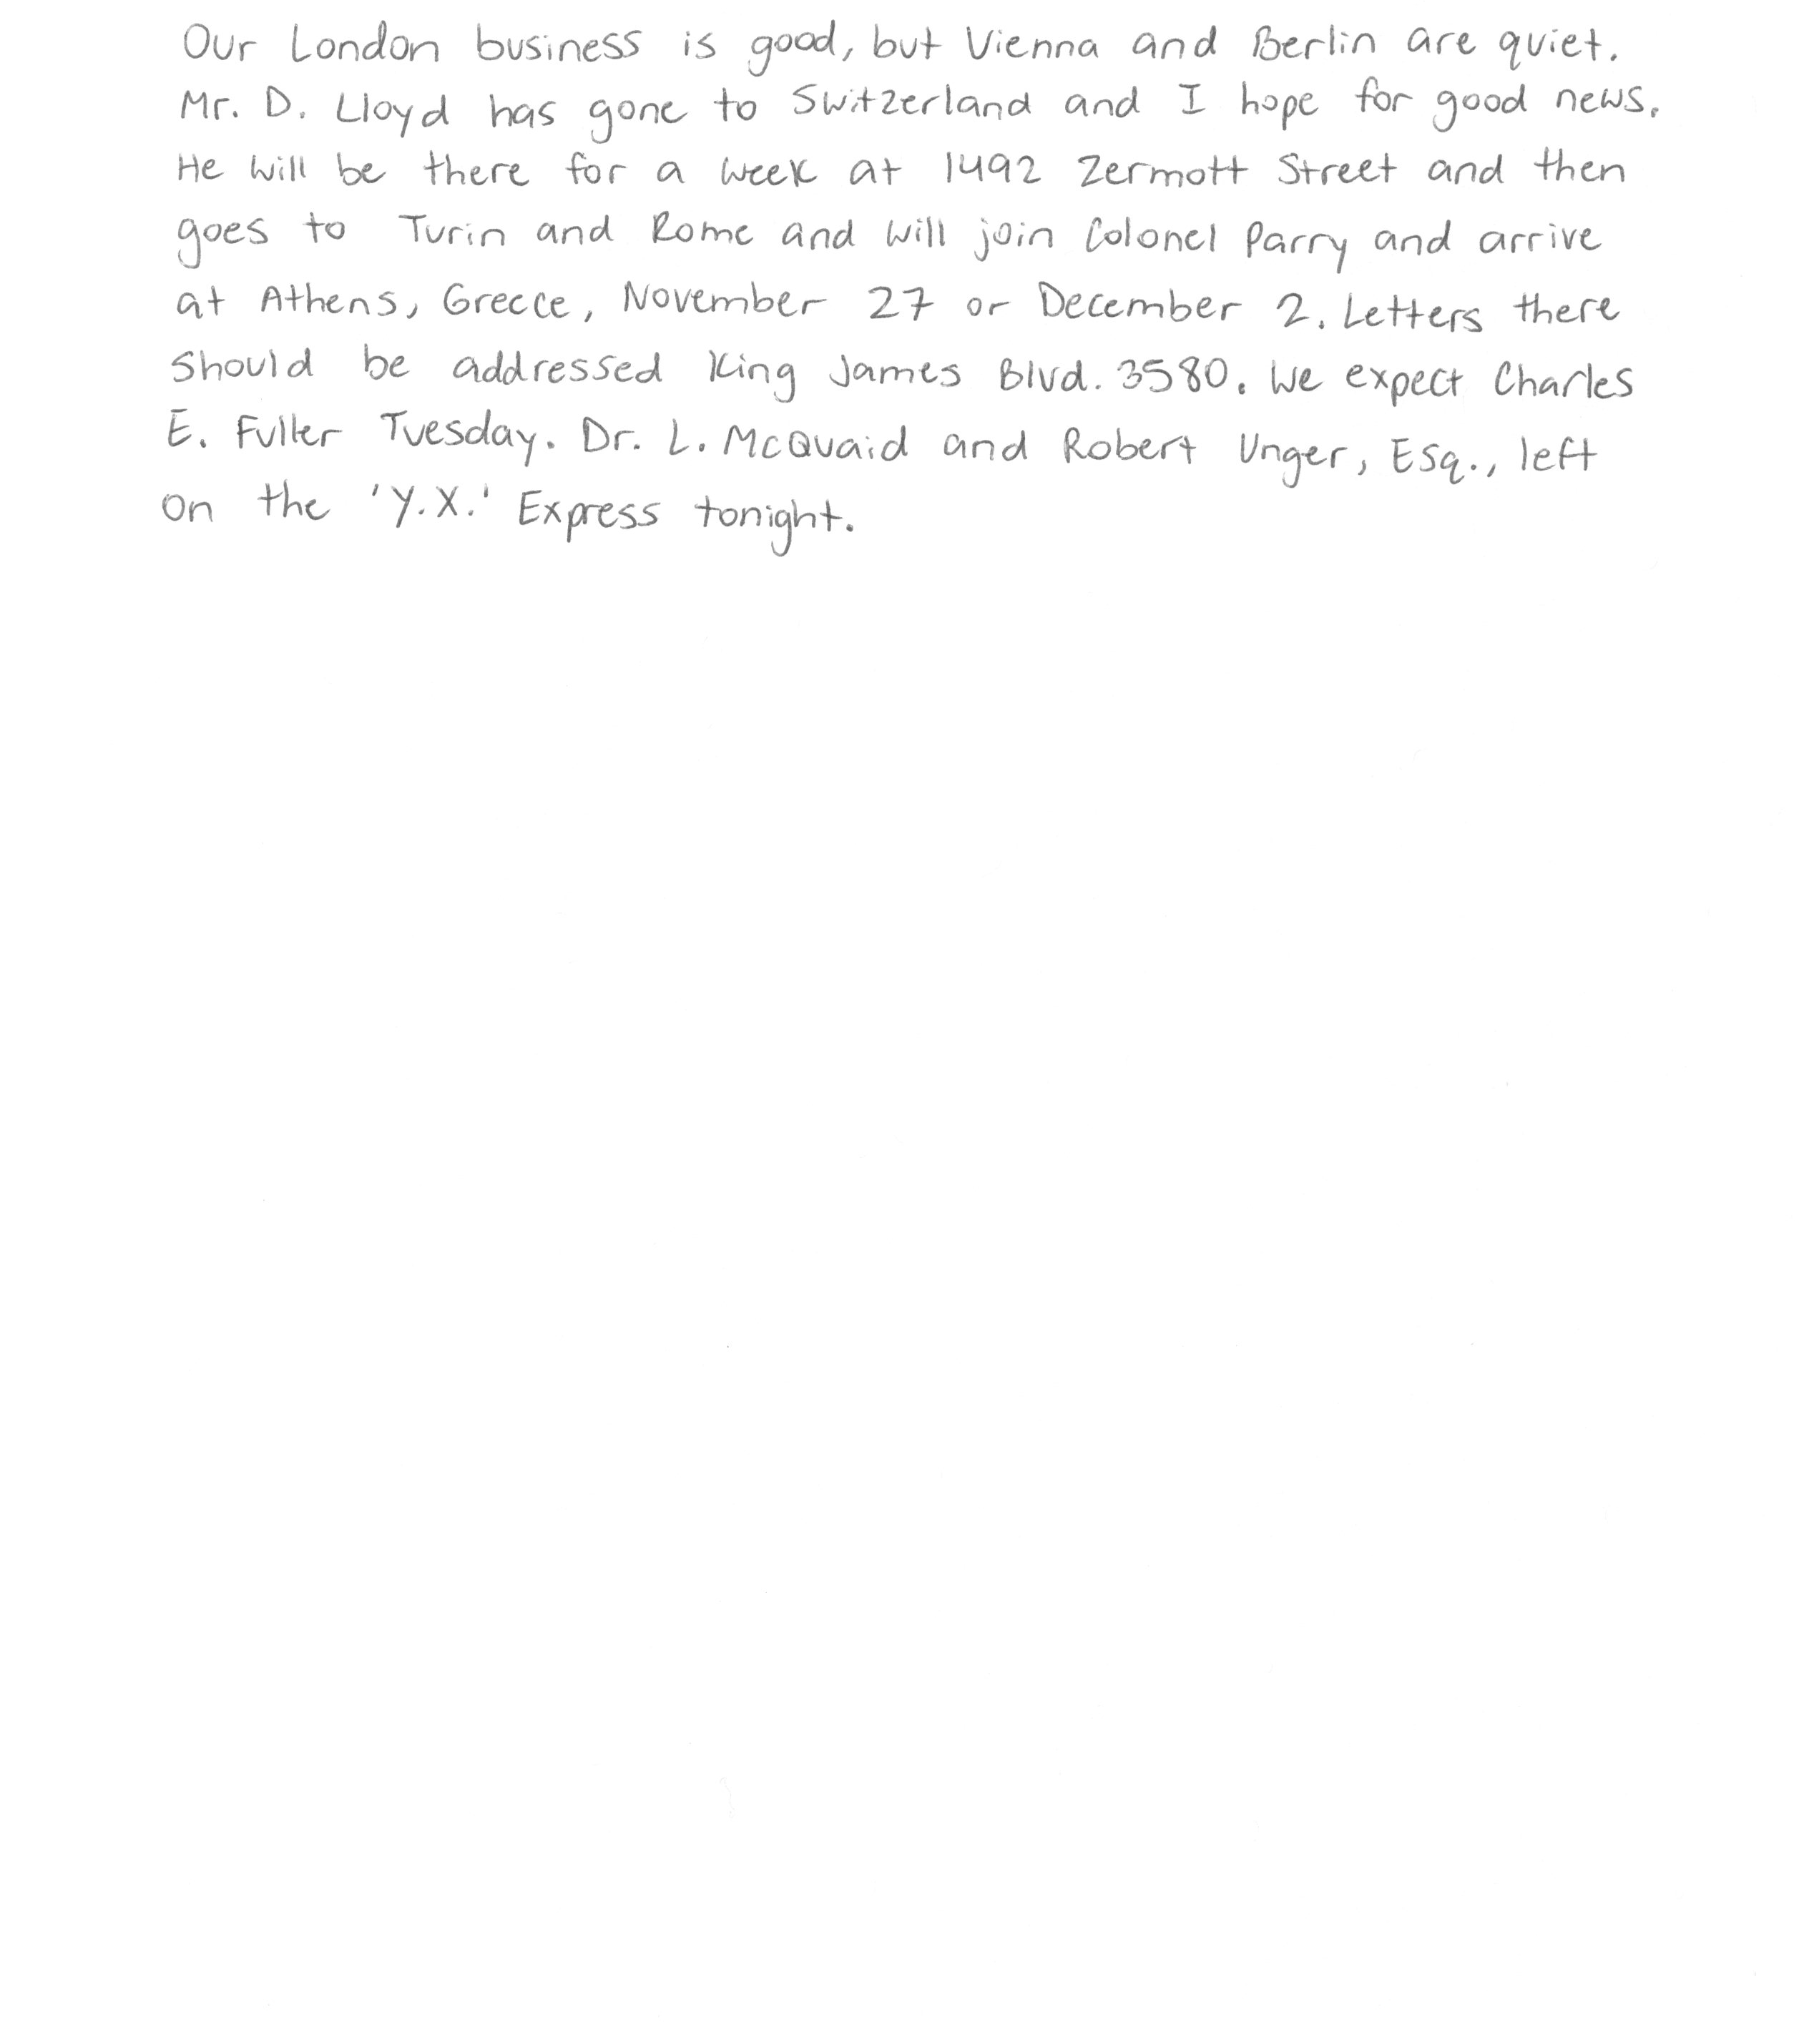 Our London business is good, but Vienna and Berlin are quiet.
Mr. D. Lloyd has gone to Switzerland and I hope for good news.
He will be there for a week at 1492 Zermott Street and then
goes to Turin and Rome and will join Colonel Parry and arrive
at Athens, Greece, November 27 or December 2. Letters there
should be addressed King James Blvd. 3580. We expect Charles
E. Fuller Tuesday. Dr. L. McQuaid and Robert Unger, Esq., left
on the 'Y.X.' Express tonight.